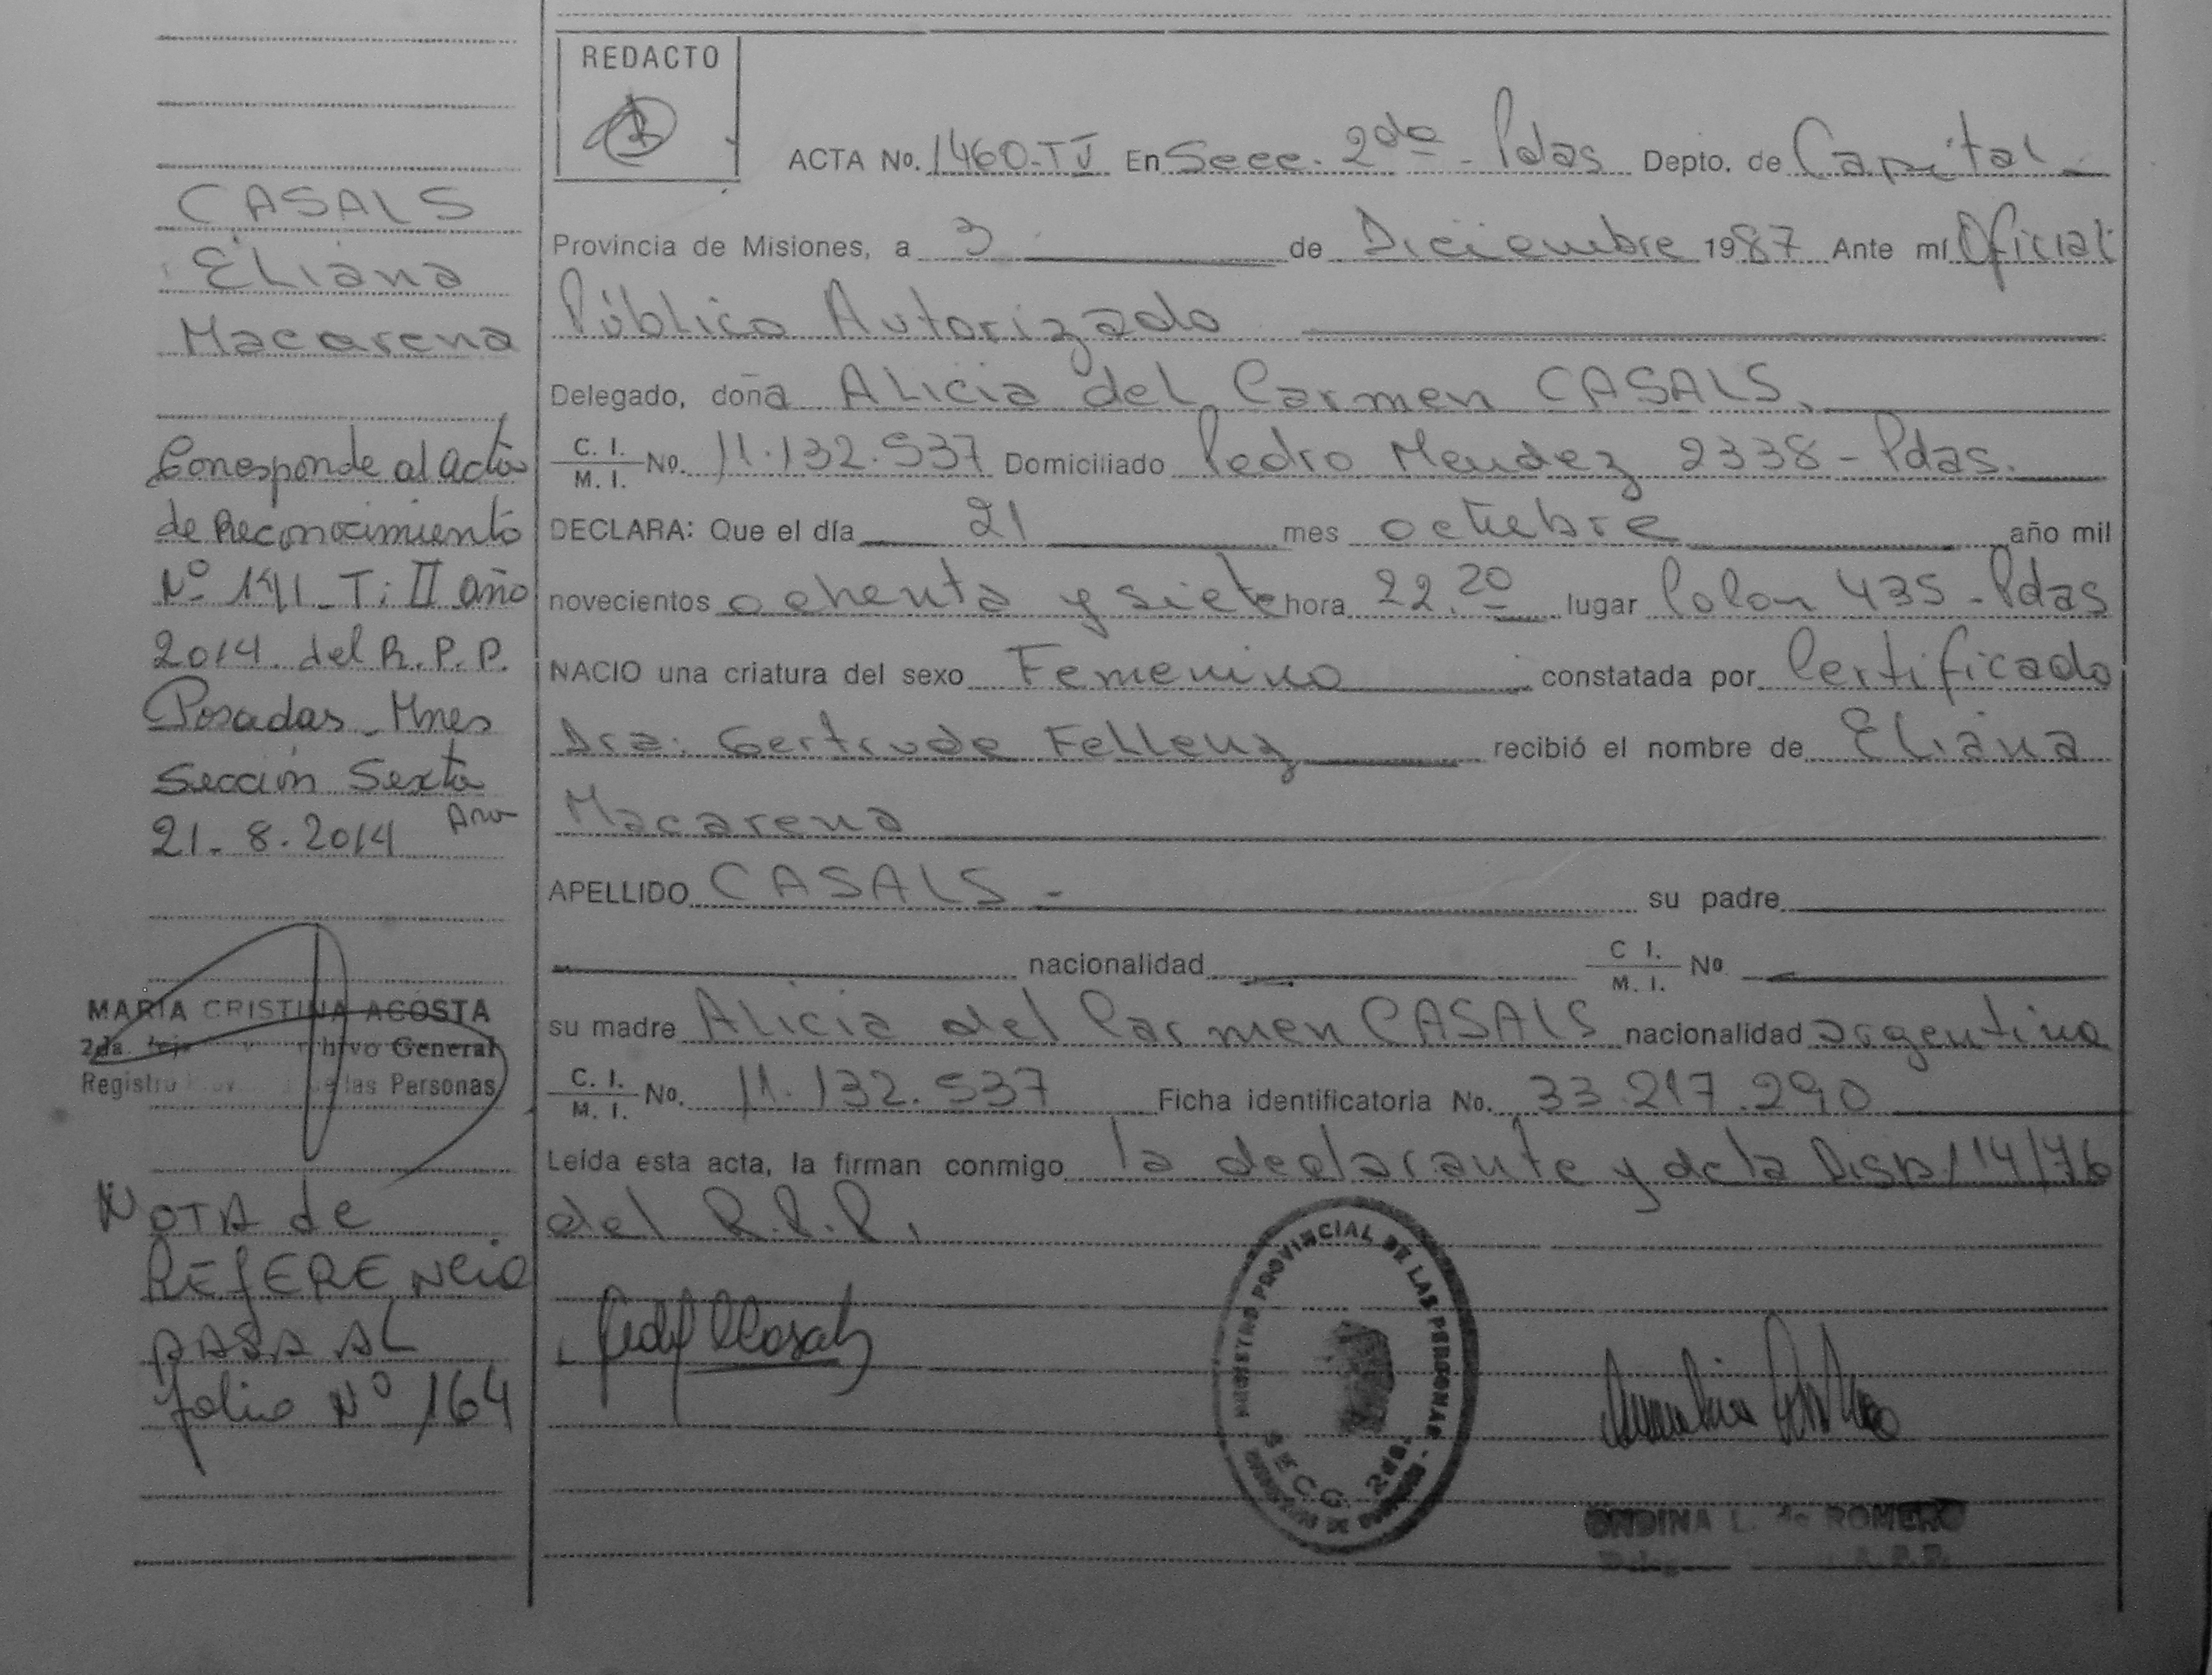 CASALS
Eliana
Macarena
Corresponde al Acta
de Reconocimiento
Nº 191 T: II año
2014 del R.P.P.
Posadas - Mnes
Sección Sexta
21-8-2014
MARIA CRISTINA ACOSTA
2da. General
Registro las Personas
NOTA de
REfERENcia
PASA AL
folio Nº 164
REDACTO
ACTA No. 1460-T V En Secc. 2da - Pdas Depto. de Capital
Provincia de Misiones, a 3 de Diciembre 1987 Ante mí Oficial
Público Autorizado
Delegado, doña Alicia del Carmen CASALS.
C. I. / M. I. No. 11.132.537 Domiciliado Pedro Mendez 2338 - Pdas.
DECLARA: Que el día 21 mes octubre año mil
novecientos ochenta y siete hora 22.20 lugar Colon 435 - Pdas
NACIO una criatura del sexo Femenino constatada por Certificado
Dra: Gertrude Fellenz recibió el nombre de Eliana
Macarena
APELLIDO CASALS - su padre
nacionalidad C I. / M. I. No
su madre Alicia del Carmen CASALS nacionalidad argentina
C. I. / M. I. No. 11.132.537 Ficha identificatoria No. 33.217.290
Leída esta acta, la firman conmigo la declarante y de la Disp/14/76
del R.P.P.
REGISTRO PROVINCIAL DE LAS PERSONAS
SECC. 2da.
ONDINA L. de ROMERO
R.P.P.